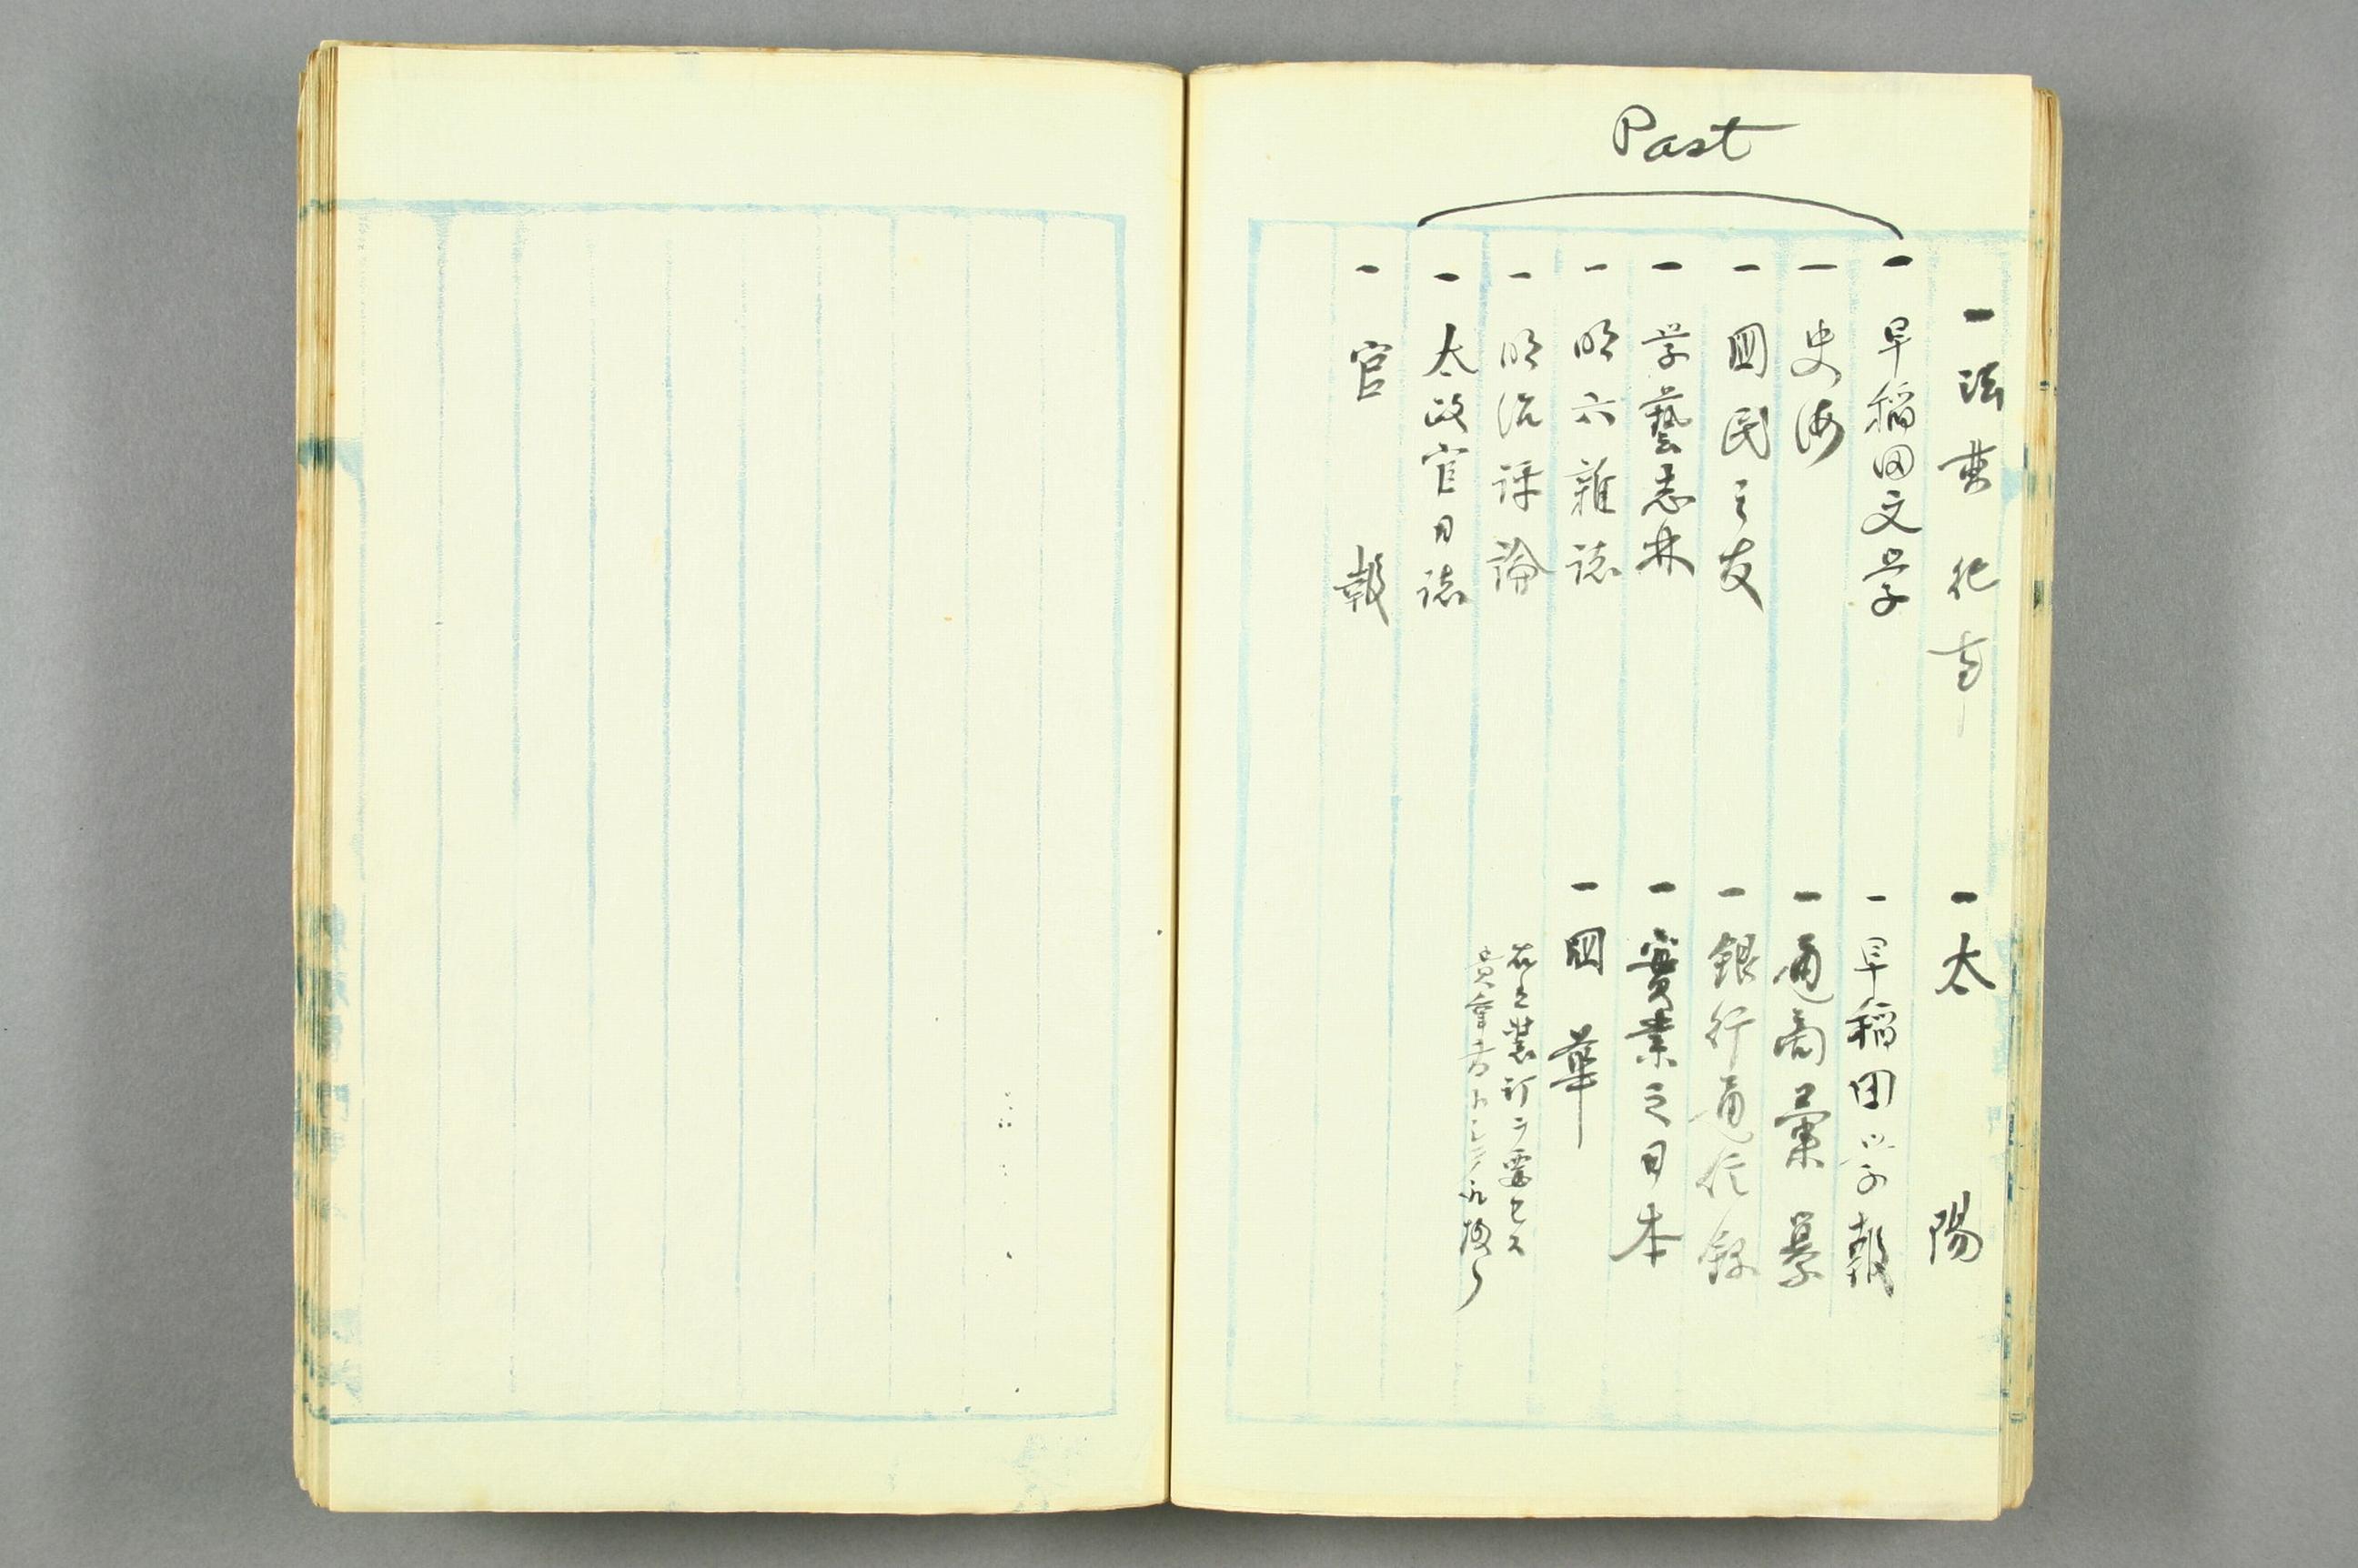 Past
一 法曹記事
一 早稲田文学
一 史海
一 国民之友
一 学藝志林
一 明六雑誌
一 明治評論
一 太政官日誌
一 官報
一 太陽
一 早稲田学報
一 通商彙纂
一 銀行通信録
一 實業之日本
一 国華
右之装訂ヲ要セス
貴重書トシテ永機